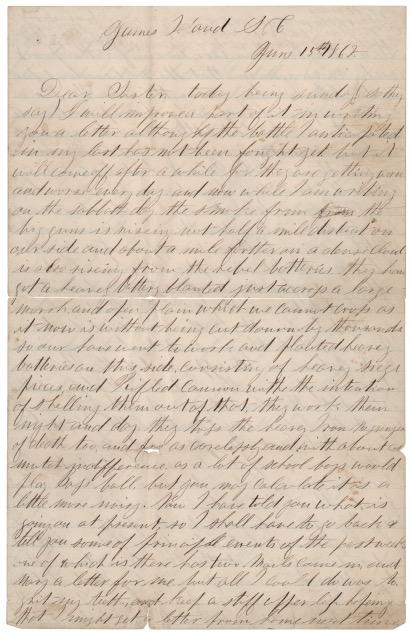 James Island S C
June 15th 1862
Dear Sister today being sunday (so they
say) I will improve a part of it in writing
you a letter although the battle I anticipated
in my last has not been fought yet but it
will come off after a while for they are getting worse
and worse every day and now while I am writing
on the sabbath day the smoke from the
big guns is rising not half a mile distant on
our side and about a mile farther on a dense cloud
is also rising from the rebel batteries. they have
got a heavy battery planted just across a large
marsh and open plain which we cannot cross as
it now is without being cut down by thousands
so our forces went to work and planted heavy
batteries on this side. consisting of heavy siege
pieces and Rifled cannon with the intention
of shelling them out of that. they work them
night and day they toss the heavy iron
of death too and fro as carelessly and with about as
much indifference as a lot of school boys would
play base ball but you may calculate it is a
little more noisy. Now I have told you what is
going on at present, so I shall have to go back &
tell you some of principal events of the past week
one of which is there has two Mails came in and
nary a letter for me but all I could do was to
grit my teeth, and keep a stiff upper lip hoping
that I might get a letter from some next time